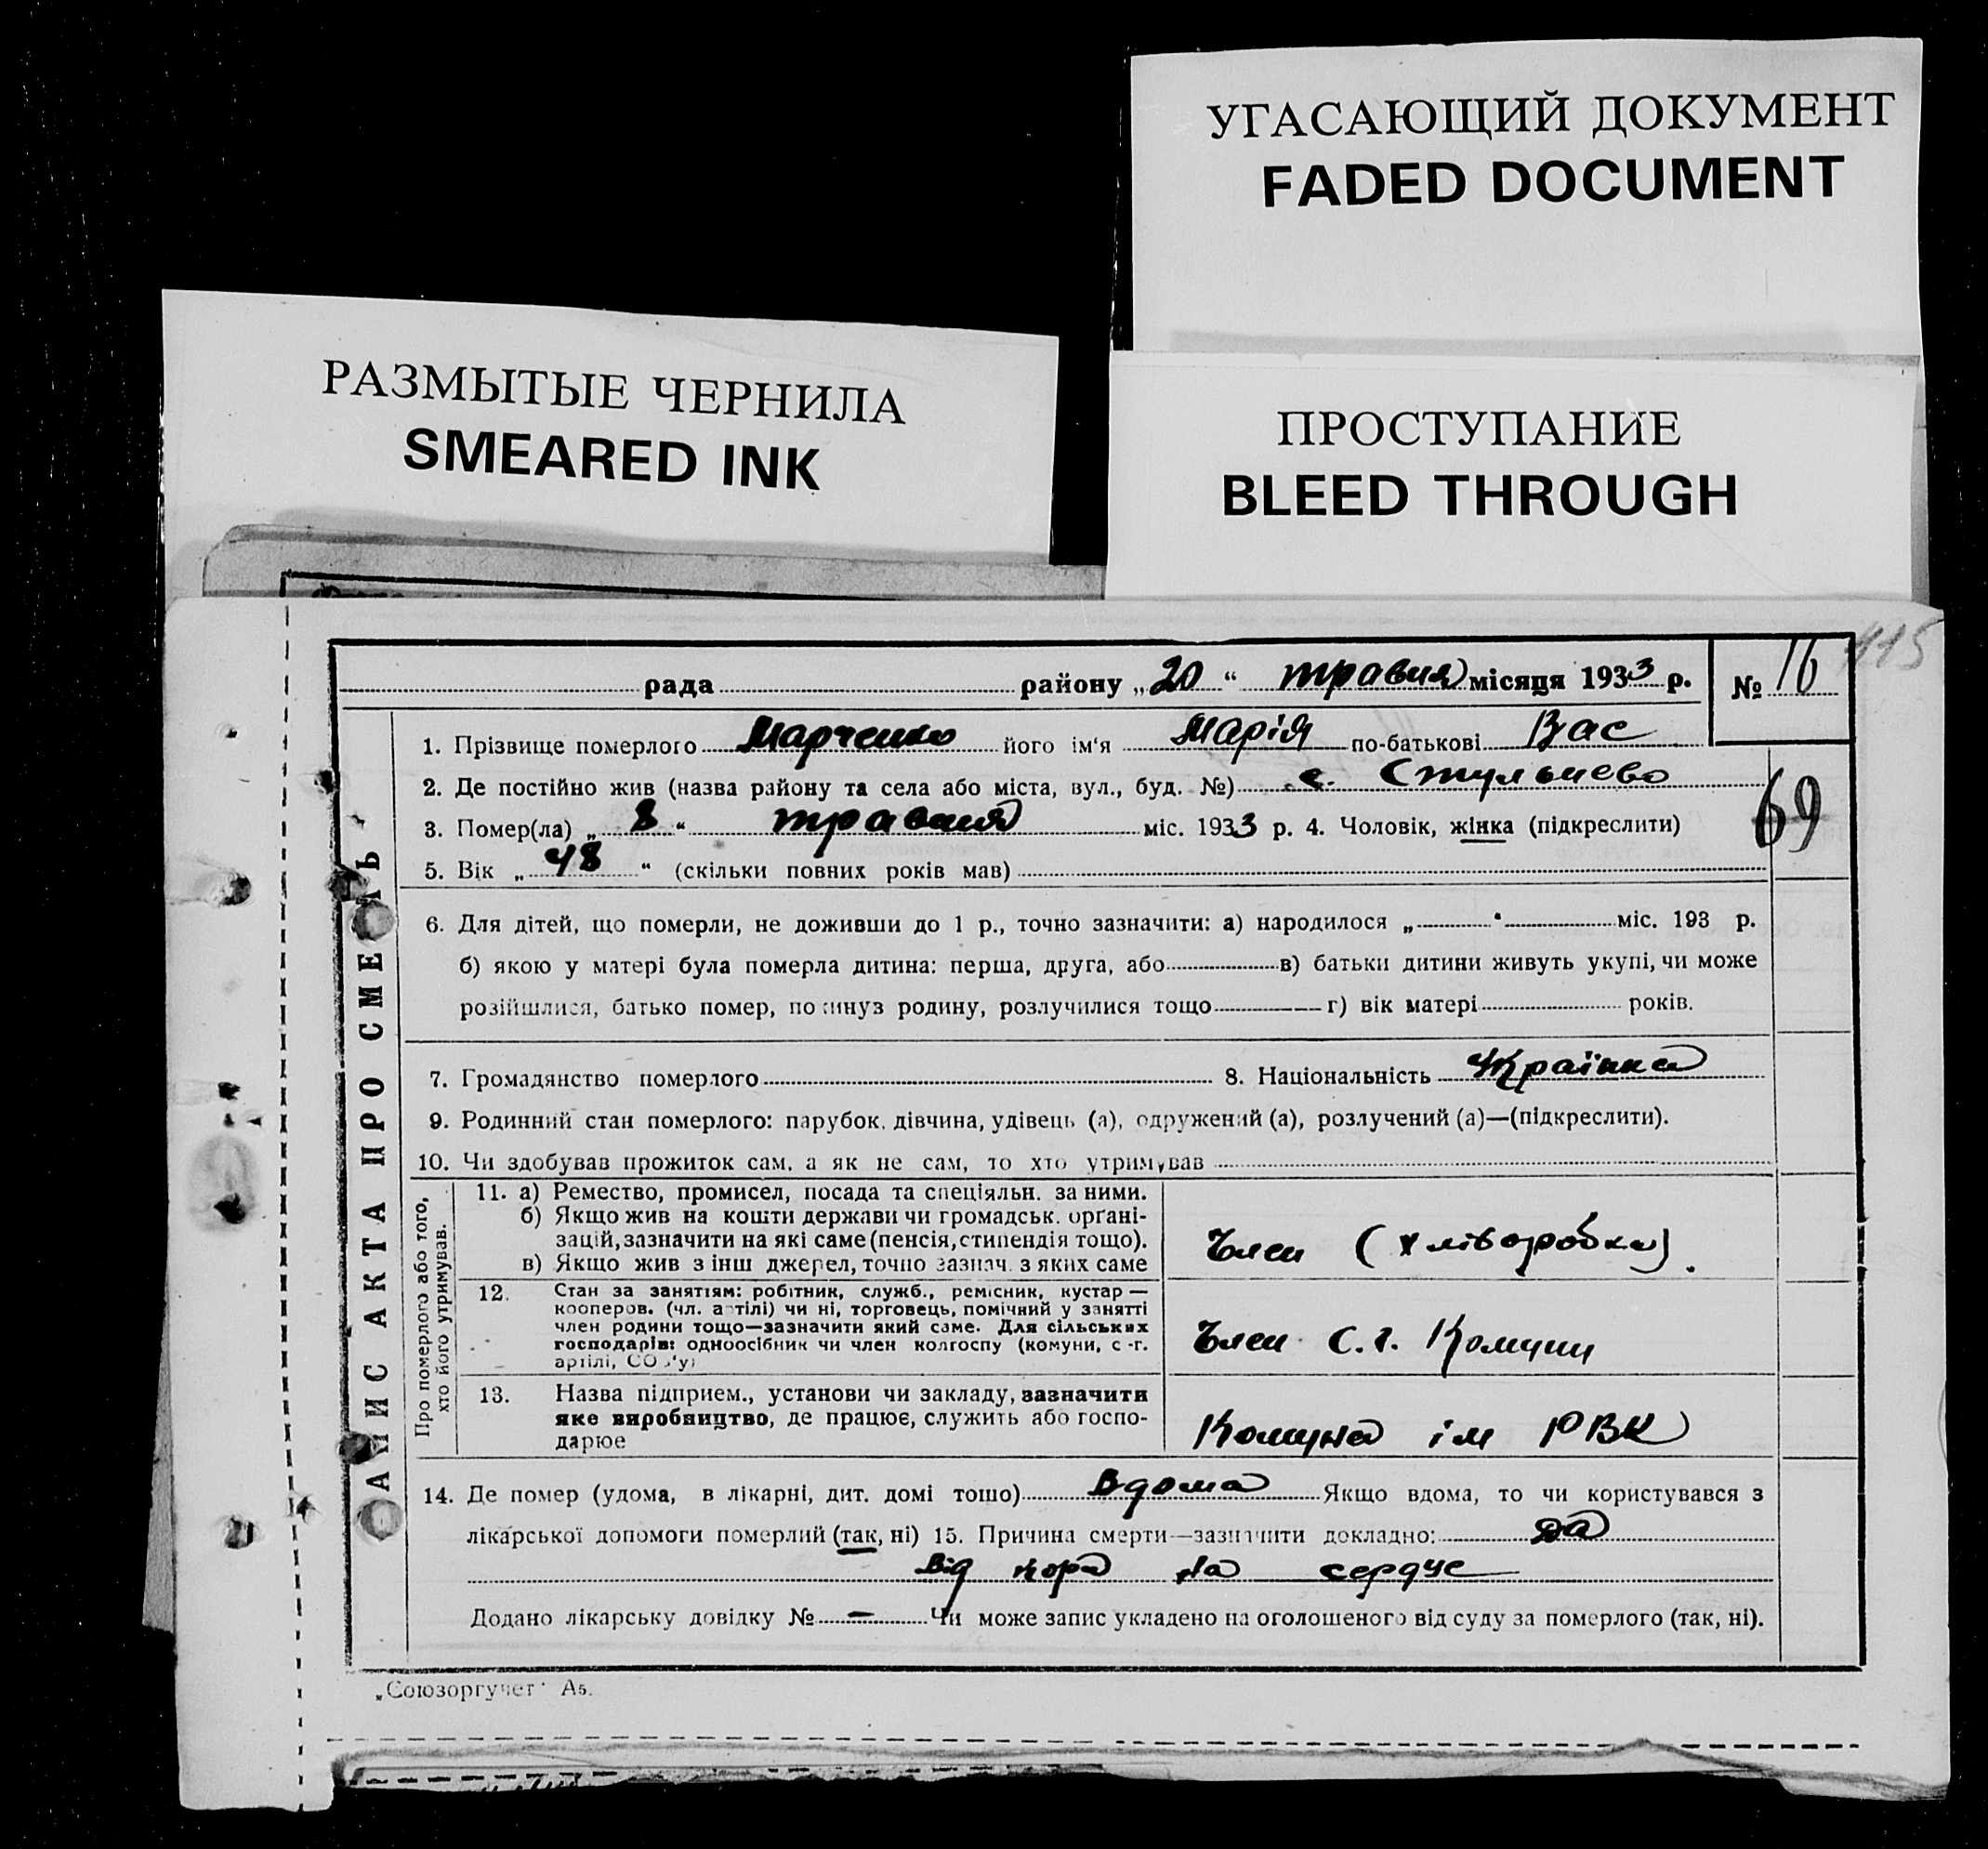 УГАСАЮЩИЙ ДОКУМЕНТ
FADED DOCUMENT
РАЗМЫТЫЕ ЧЕРНИЛА
SMEARED INK
ПРОСТУПАНИЕ
BLEED THROUGH
115
рада району „20“ травня місяця 1933 р. № 16
1. Прізвище померлого Марченко його ім'я Марія по-батькові Вас
2. Де постійно жив (назва району та села або міста, вул., буд. №) с. Стульнево
69
3. Помер(ла) „8“ травня міс. 1933 р. 4. Чоловік, жінка (підкреслити)
5. Вік „48“ (скільки повних років мав)
6. Для дітей, що померли, не доживши до 1 р., точно зазначити: а) народилося „ “ міс. 193 р.
б) якою у матері була померла дитина: перша, друга, або в) батьки дитини живуть укупі, чи може
розійшлися, батько помер, покинув родину, розлучилися тощо г) вік матері років.
7. Громадянство померлого 8. Національність Українка
9. Родинний стан померлого: парубок, дівчина, удівець (а), одружений (а), розлучений (а)—(підкреслити).
10. Чи здобував прожиток сам, а як не сам, то хто утримував
ЗАПИС АКТА ПРО СМЕРТЬ
Про померлого або того,
хто його утримував.
11. а) Ремество, промисел, посада та спеціяльн. за ними.
б) Якщо жив на кошти держави чи громадськ. орґані-
зацій, зазначити на які саме (пенсія, стипендія тощо).
в) Якщо жив з інш джерел, точно зазнач. з яких саме
Член (хліборобка).
12. Стан за заняттям: робітник, служб., ремісник, кустар —
кооперов. (чл. артілі) чи ні, торговець, помічний у занятті
член родини тощо—зазначити який саме. Для сільських
господарів: одноосібник чи член колгоспу (комуни, с.-г.
артілі, СОЗ'у)
Член С.г. Комуни
13. Назва підприєм., установи чи закладу, зазначити
яке виробництво, де працює, служить або госпо-
дарює
Комуна ім РВК
14. Де помер (удома, в лікарні, дит. домі тощо) Вдома Якщо вдома, то чи користувався з
лікарської допомоги померлий (так, ні) 15. Причина смерти—зазначити докладно: да
від пора на сердце
Додано лікарську довідку № — Чи може запис укладено на оголошеного від суду за померлого (так, ні).
„Союзоргучет“ А5.